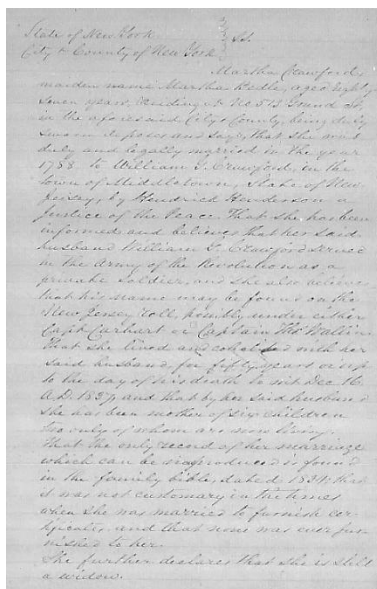 State of New York
City & County of New York } SS.
Martha Crawford,
maiden name Martha Bedle, aged eighty
seven years, residing at No 513 Grand St,
in the aforesaid City & County, being duly
sworn deposes and says, that she was
duly and legally married in the year
1788 to William G. Crawford, in the
town of Middletown, State of New
Jersey, by Hendrick Henderson a
Justice of the Peace. That she has been
informed and believes that her said
husband William G. Crawford served
in the Army of the Revolution as a
private soldier, and she also believes
that his name may be found on the
New Jersey roll possibly under either
Capt. Carhart or Captain Thos
that she lived and cohabited with her
said husband for fifty years or up
to the day of his death to wit Dec 16
A.D. 1837, and that by her said husband
she has been mother of six children
two only of whom are now living.
That the only record of her marriage
which can be produced is found
in the family bible, dated that
it was not customary in the times
when she was married to furnish cer-
tificates, and that none was ever fur-
nished to her.
She further declares that she is still
a widow.